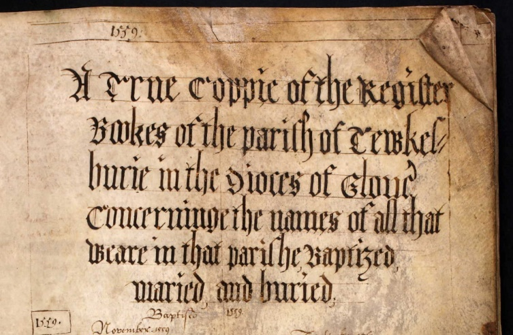 1559.
A True Coppie of the Register
Bookes of the parish of Tewkes-
burie in the Dioces of Glouc
Concerninge the names of all that
Weare in that parishe Baptized,
maried, and buried.
Baptised 1559
1559.
November 1559